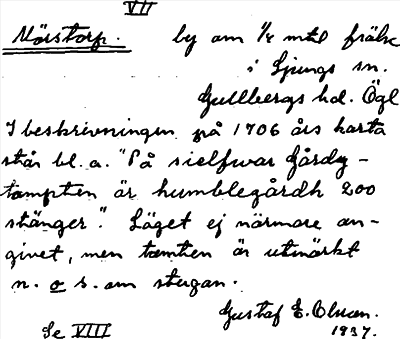 VII
Mörstorp. by om 1/2 mtl frälse
i Ljungs sn.
Gullbergs hd. Ögl
I beskrivningen på 1706 års karta
står bl. a. "På sielfwar Gårdz-
tompten är humblegårdh 200
stänger." Läget ej närmare an-
givet, men tomten är utmärkt
n. o s. om stugan.
Gustaf E. Olsson.
1937.
Se VIII